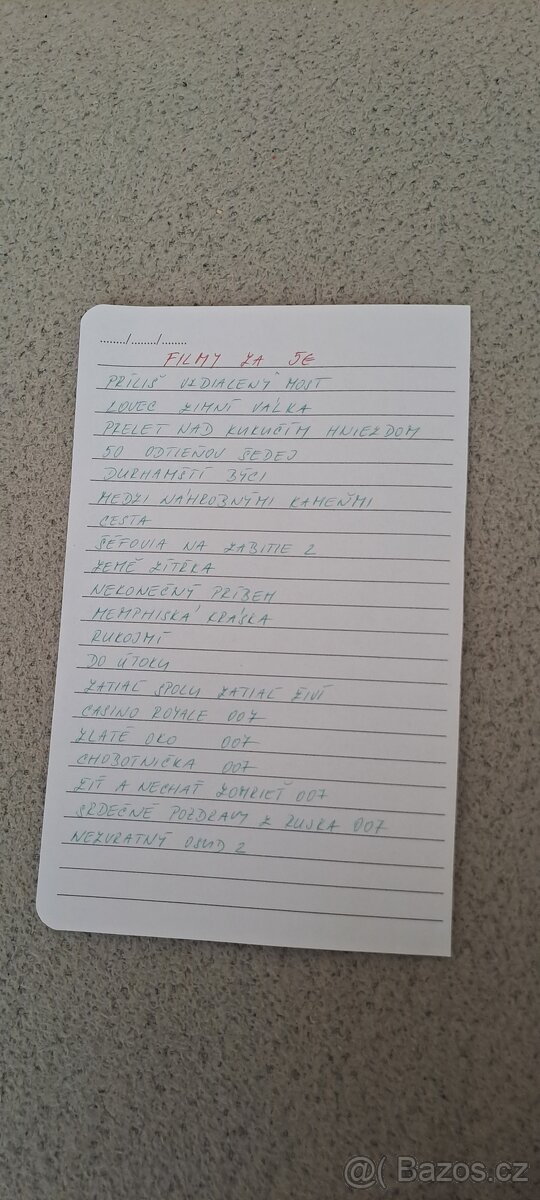 ......../......../........
FILMY ZA 5€
PRÍLIŠ VZDIALENÝ MOST
LOVEC ZIMNÍ VÁLKA
PRELET NAD KUKUČÍM HNIEZDOM
50 ODTIEŇOV ŠEDEJ
DURHAMŠTÍ BÝCI
MEDZI NÁHROBNÝMI KAMEŇMI
CESTA
ŠÉFOVIA NA ZABITIE 2
ZEMĚ ZÍTŘKA
NEKONEČNÝ PRÍBEH
MEMPHISKÁ KRÁSKA
RUKOJMÍ
DO ÚTOKU
ZATIAĽ SPOLU ZATIAĽ ŽIVÍ
CASINO ROYALE 007
ZLATÉ OKO 007
CHOBOTNIČKA 007
ŽIŤ A NECHAŤ ZOMRIEŤ 007
SRDEČNÉ POZDRAVY Z RUSKA 007
NEZVRATNÝ OSUD 2
@( Bazos.cz